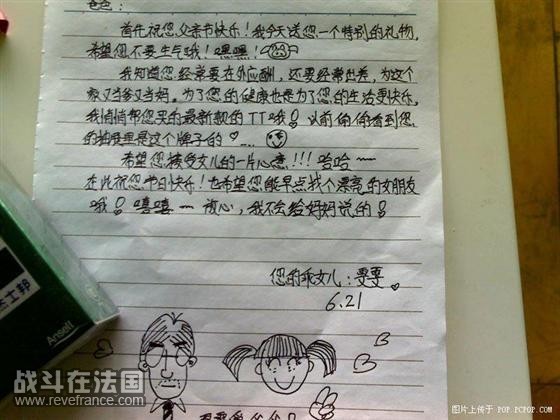 爸爸：
首先祝您父亲节快乐！我今天送您一个特别的礼物，
希望您不要生气哦！嘿嘿！
我知道您经常要在外应酬，还要经常出差，为这个
家又当爹又当妈。为了您的健康也是为了您的生活更快乐，
我悄悄帮您买的最新款的TT哦！以前偷偷看到您
的抽屉里是这个牌子的
希望您接受女儿的一片心意！！！哈哈~~
在此祝您节日快乐！也希望您能早点找个漂亮的女朋友
哦！嘻嘻~~放心，我不会给妈妈说的！
您的乖女儿：雯雯
6.21
士邦
Ansell
战斗在法国
www.revefrance.com
图片上传于 POP.PCPOP.COM